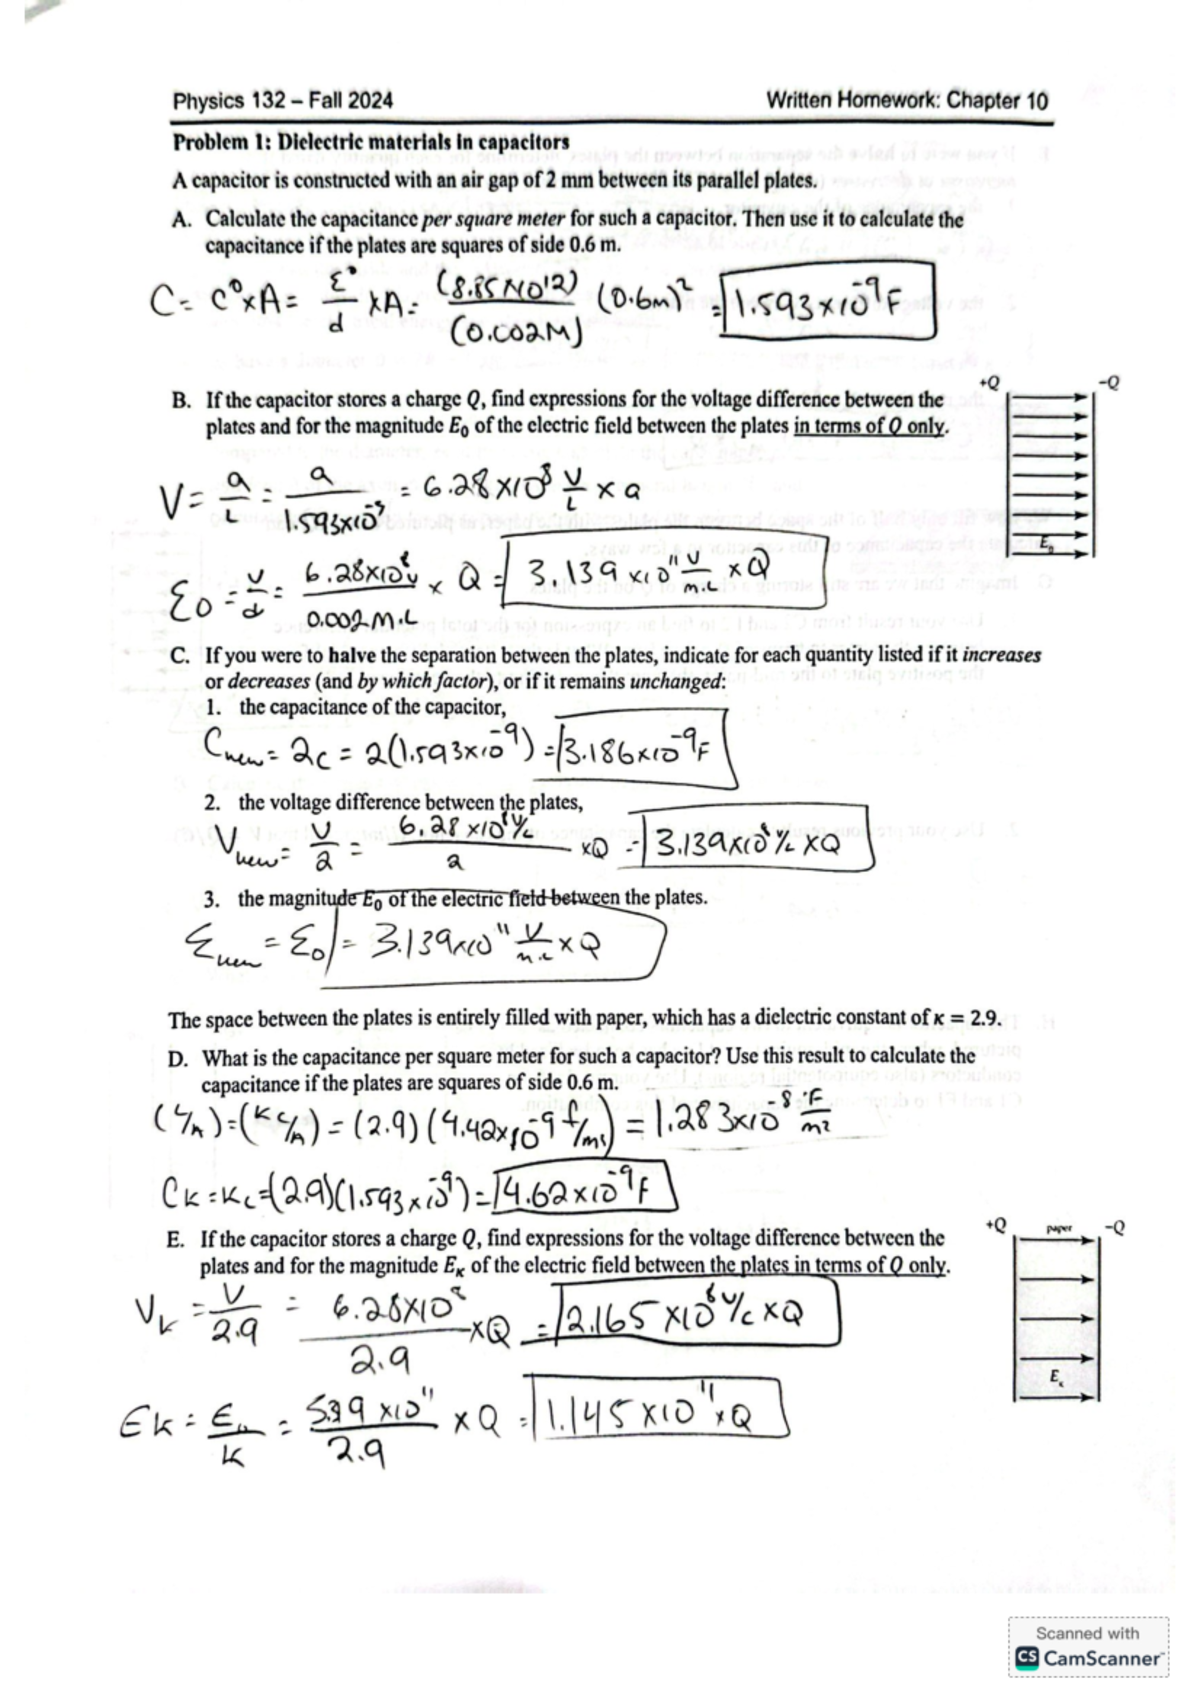 Physics 132 – Fall 2024
Written Homework: Chapter 10
Problem 1: Dielectric materials in capacitors
A capacitor is constructed with an air gap of 2 mm between its parallel plates.
A. Calculate the capacitance per square meter for such a capacitor. Then use it to calculate the
capacitance if the plates are squares of side 0.6 m.
C = C° x A = ε°/d x A = (8.85x10^12)/(0.002M) (0.6m)² = 1.593x10^-9 F
B. If the capacitor stores a charge Q, find expressions for the voltage difference between the
plates and for the magnitude E₀ of the electric field between the plates in terms of Q only.
+Q
-Q
E₀
V = Q/C = Q/1.593x10^-9 = 6.28x10^8 V/C x Q
E0 = V/d = 6.28x10^8 V/0.002M.C x Q = 3.139x10^11 V/m.C x Q
C. If you were to halve the separation between the plates, indicate for each quantity listed if it increases
or decreases (and by which factor), or if it remains unchanged:
1. the capacitance of the capacitor,
Cnew = 2C = 2(1.593x10^-9) = 3.186x10^-9 F
2. the voltage difference between the plates,
Vnew = V/2 = 6.28x10^8 V/C/2 xQ = 3.139x10^8 V/C xQ
3. the magnitude E₀ of the electric field between the plates.
Enew = E₀ = 3.139x10^11 V/m.C x Q
The space between the plates is entirely filled with paper, which has a dielectric constant of κ = 2.9.
D. What is the capacitance per square meter for such a capacitor? Use this result to calculate the
capacitance if the plates are squares of side 0.6 m.
(C/A) = (K C/A) = (2.9)(4.42x10^-9 F/m²) = 1.283x10^-8 F/m²
CK = KC = (2.9)(1.593x10^-9) = 4.62x10^-9 F
E. If the capacitor stores a charge Q, find expressions for the voltage difference between the
plates and for the magnitude Eκ of the electric field between the plates in terms of Q only.
+Q
paper
-Q
Eκ
VK = V/2.9 = 6.28x10^8/2.9 xQ = 2.165x10^8 V/C xQ
EK = E₀/K = 10^11/2.9 x Q = 1.145x10^11 x Q
Scanned with
CS CamScanner